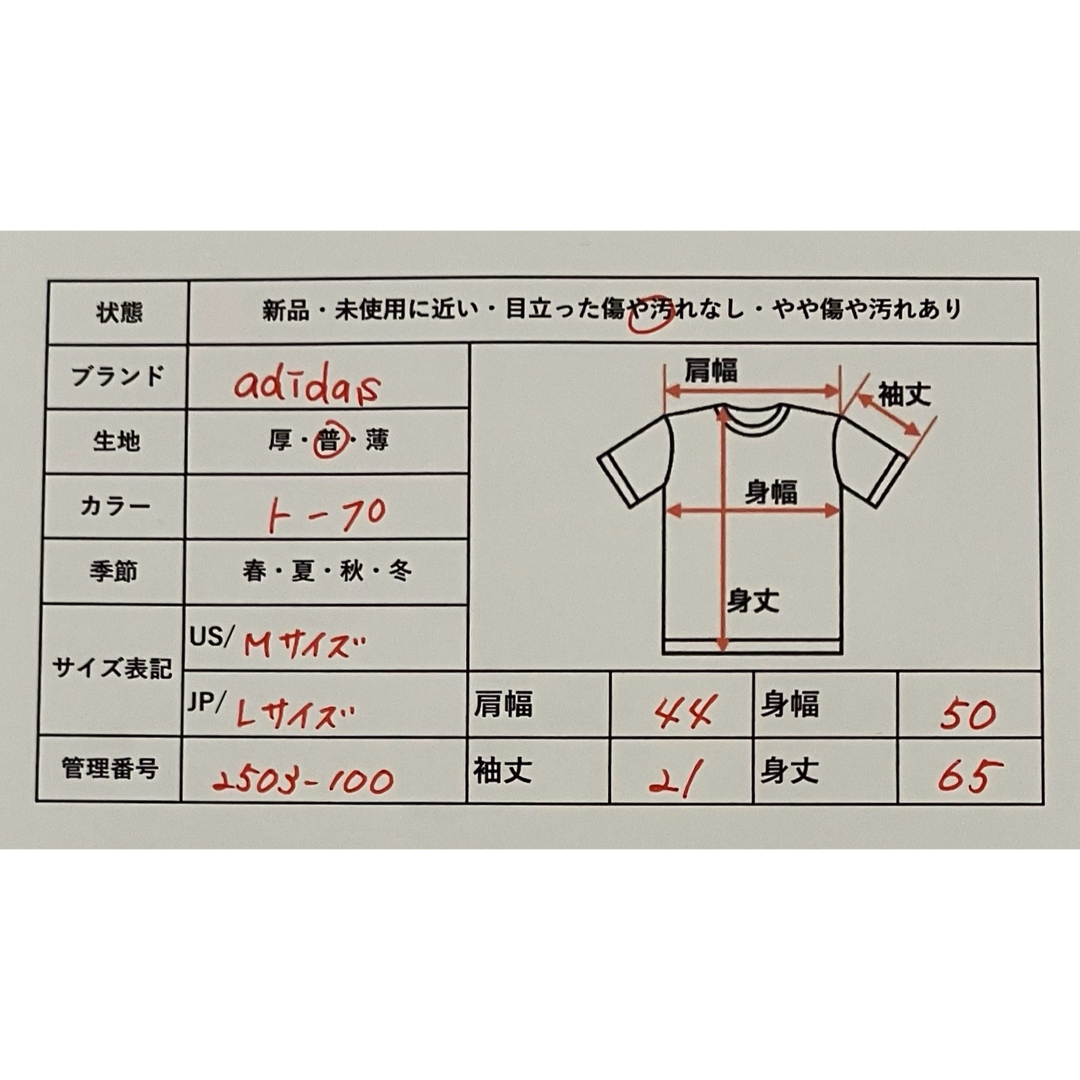 状態 新品・未使用に近い・目立った傷や汚れなし・やや傷や汚れあり
ブランド adidas
生地 厚・普・薄
カラー ト-70
季節 春・夏・秋・冬
サイズ表記 US/ Mサイズ
JP/ Lサイズ
管理番号 2503-100
肩幅
袖丈
身幅
身丈
肩幅 44 身幅 50
袖丈 21 身丈 65